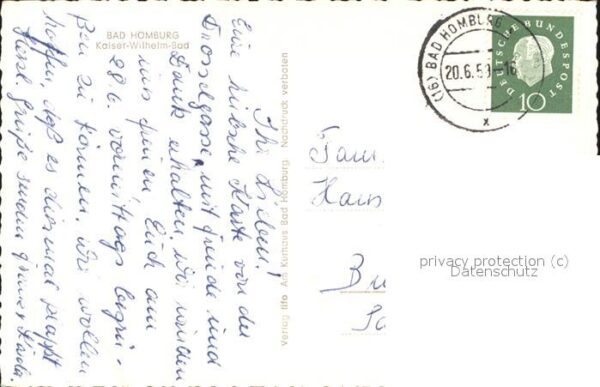 BAD HOMBURG
Kaiser-Wilhelm-Bad
Ihr Lieben!
Eine hübsche Karte von der
Drosselgasse mit Freude und
Dank erhalten. Wir
uns freuen Euch am
28.6. vormittags begrü-
ßen zu können. Wir wollen
hoffen, daß es diesmal klappt
Herzl. Grüße senden
Verlag tlo Am Kurhaus Bad Homburg. Nachdruck verboten
(16) BAD HOMBURG
20.6.59-16
x
DEUTSCHE BUNDESPOST
10
Fam.
Hans
privacy protection (c)
Datenschutz
Bu